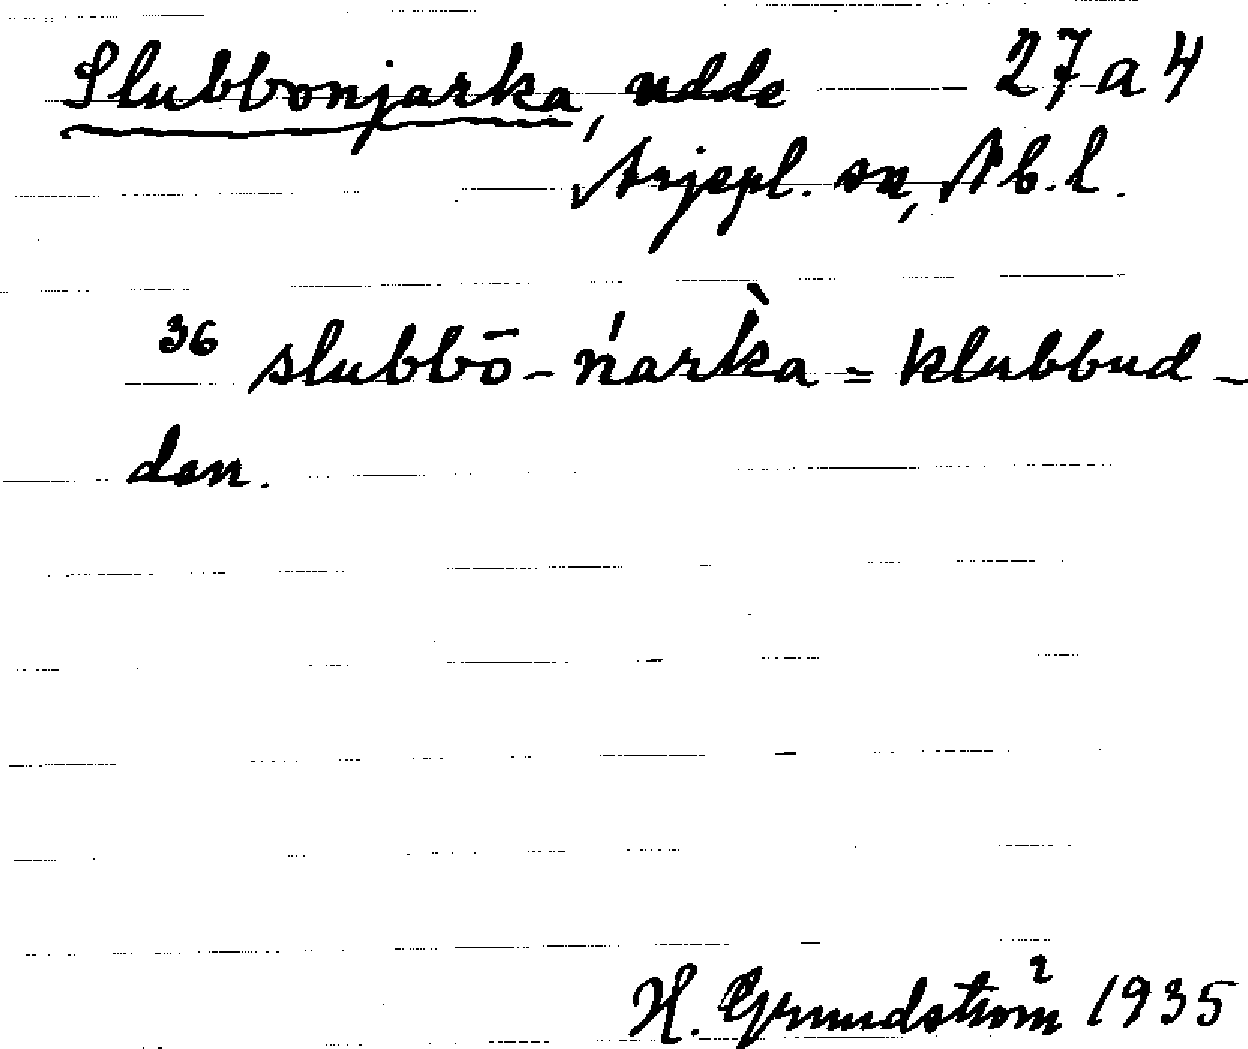 Slubbonjarka, udde 27 a 4
Arjepl. sn, Nb.l.
36 slubbō-ńark̀a = klubbud-
den.
H. Grundström 1935